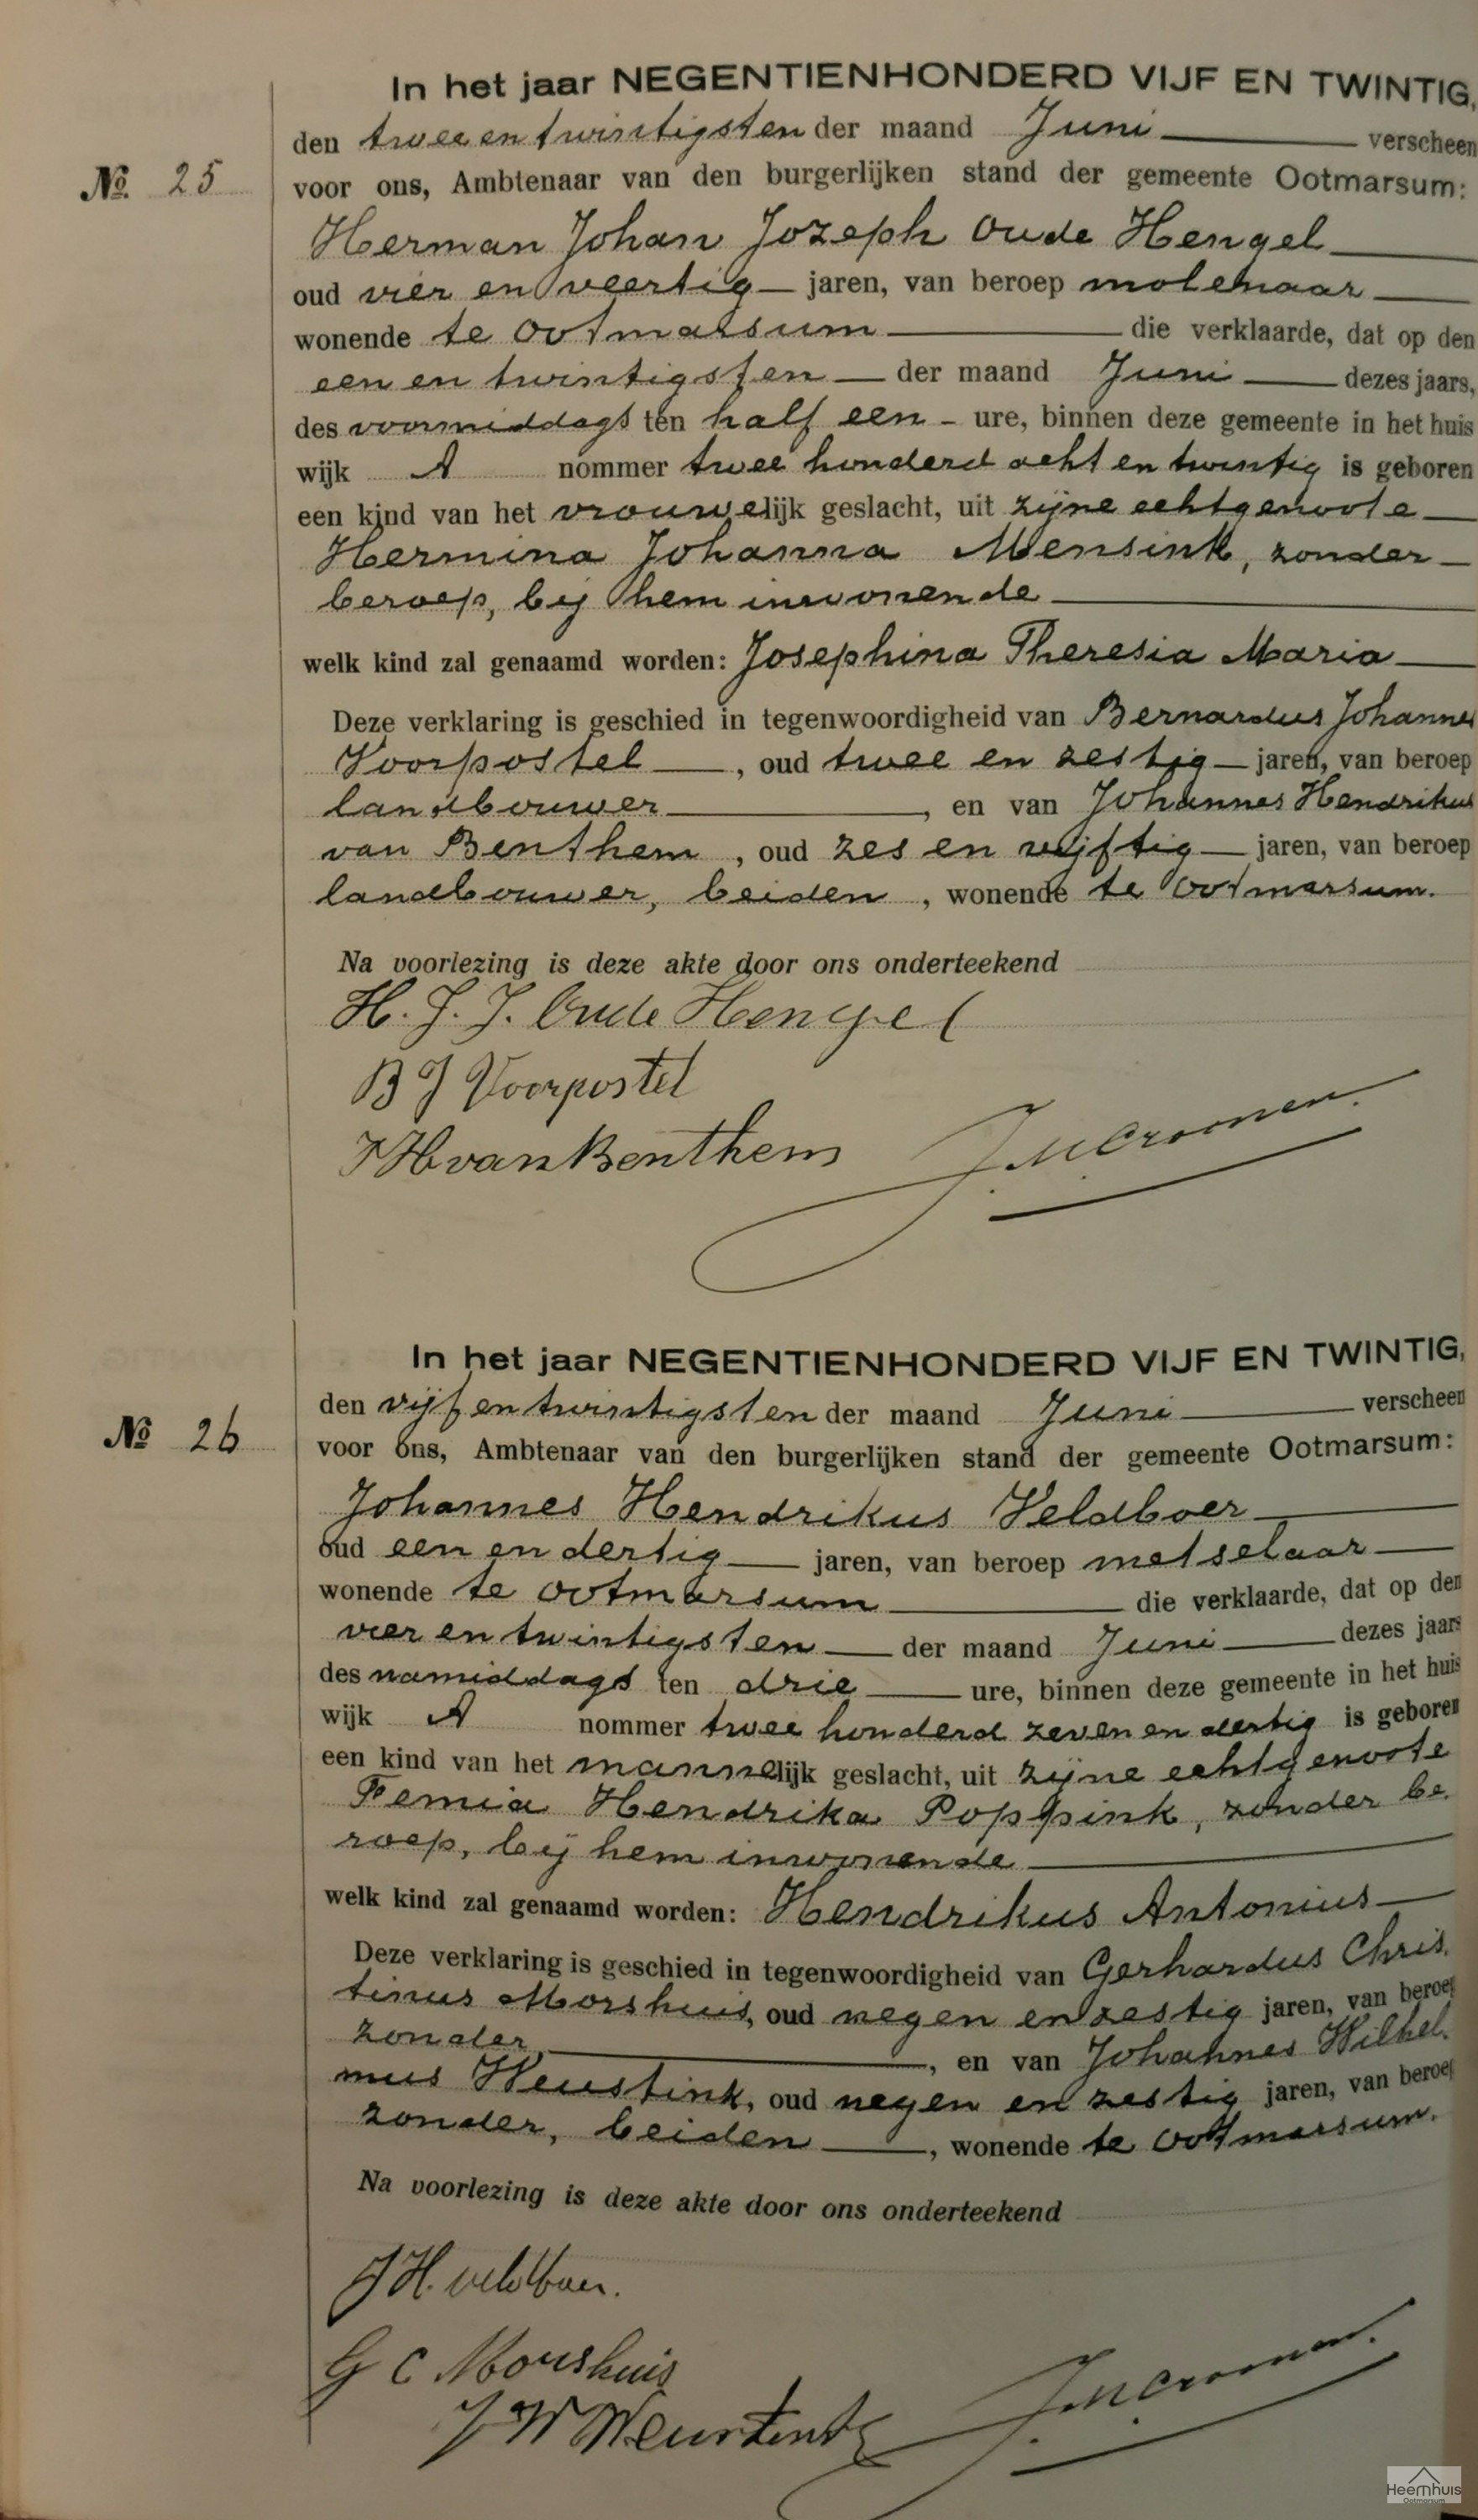 In het jaar NEGENTIENHONDERD VIJF EN TWINTIG,
den twee en twintigsten der maand Juni verscheen
No 25 voor ons, Ambtenaar van den burgerlijken stand der gemeente Ootmarsum:
Herman Johan Jozeph Oude Hengel
oud vier en veertig jaren, van beroep molenaar
wonende te Ootmarsum die verklaarde, dat op den
een en twintigsten der maand Juni dezes jaars,
des voormiddags ten half een ure, binnen deze gemeente in het huis
wijk A nommer twee honderd acht en twintig is geboren
een kind van het vrouwelijk geslacht, uit zijne echtgenoote
Hermina Johanna Mensink, zonder
beroep, bij hem inwonende
welk kind zal genaamd worden: Josephina Theresia Maria
Deze verklaring is geschied in tegenwoordigheid van Bernardus Johannes
Voorpostel, oud twee en zestig jaren, van beroep
landbouwer, en van Johannes Hendrikus
van Benthem, oud zes en vijftig jaren, van beroep
landbouwer, beiden, wonende te Ootmarsum.
Na voorlezing is deze akte door ons onderteekend
H. J. J. Oude Hengel
B J Voorpostel
J H van Benthem J. M. Croonen.
In het jaar NEGENTIENHONDERD VIJF EN TWINTIG,
den vijf en twintigsten der maand Juni verscheen
No 26 voor ons, Ambtenaar van den burgerlijken stand der gemeente Ootmarsum:
Johannes Hendrikus Veldboer
oud een en dertig jaren, van beroep metselaar
wonende te Ootmarsum die verklaarde, dat op den
vier en twintigsten der maand Juni dezes jaars
des namiddags ten drie ure, binnen deze gemeente in het huis
wijk A nommer twee honderd zeven en dertig is geboren
een kind van het mannelijk geslacht, uit zijne echtgenoote
Femia Hendrika Poppink, zonder be
roep, bij hem inwonende
welk kind zal genaamd worden: Hendrikus Antonius
Deze verklaring is geschied in tegenwoordigheid van Gerhardus Chris
tinus Morshuis, oud negen en zestig jaren, van beroep
zonder, en van Johannes Wilhel
mus Weustink, oud negen en zestig jaren, van beroep
zonder, beiden, wonende te Ootmarsum.
Na voorlezing is deze akte door ons onderteekend
J H. Veldboer.
G C Morshuis
J W Weustink J. M. Croonen.
Heemhuis
Ootmarsum